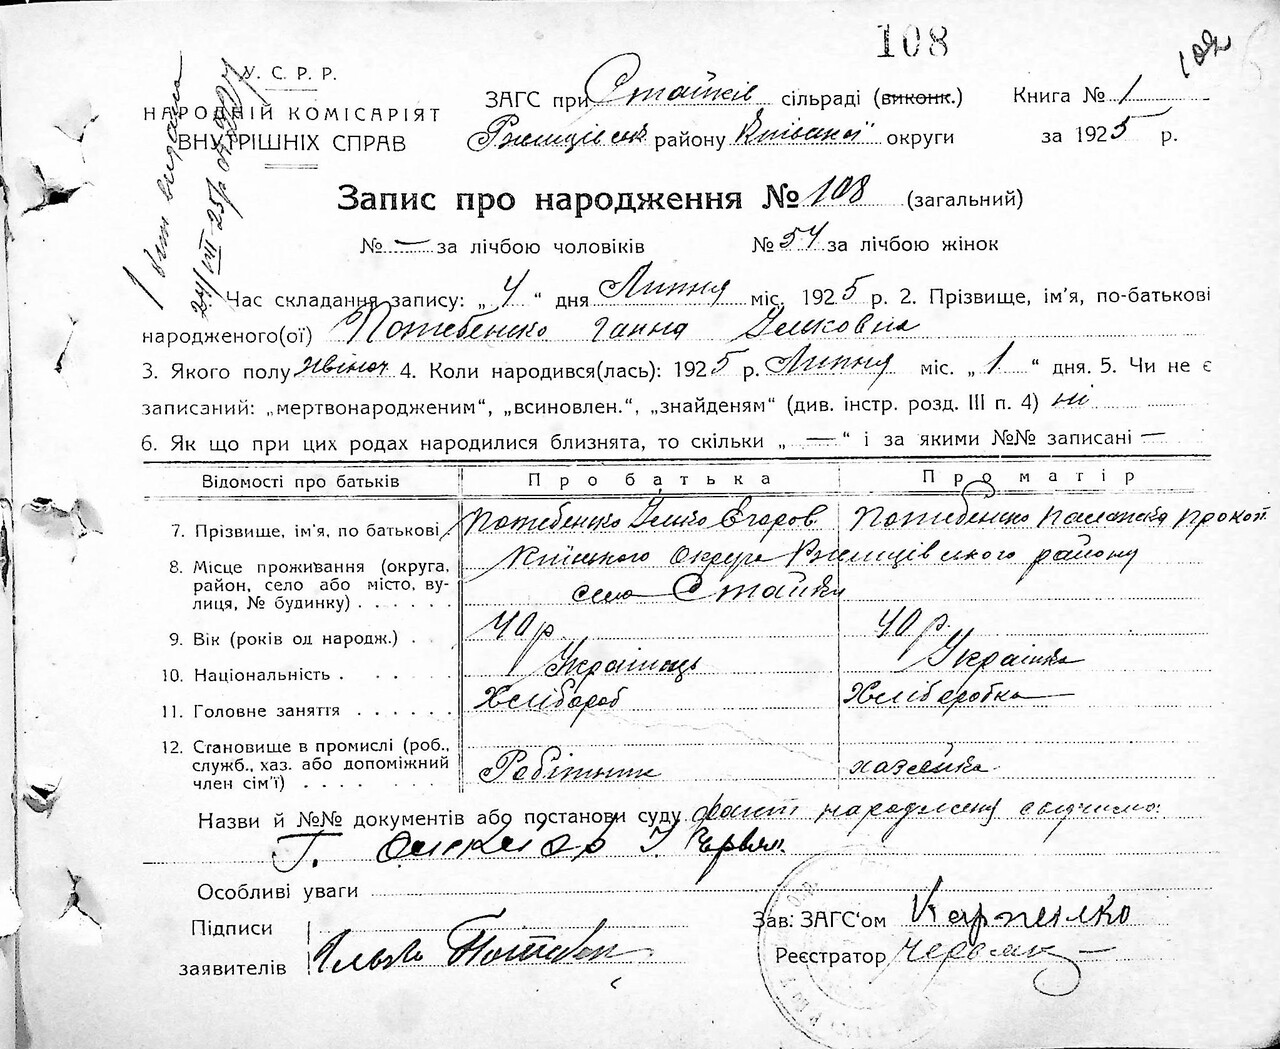 108
102
У. С. Р. Р.
НАРОДНІЙ КОМІСАРІЯТ
ВНУТРІШНІХ СПРАВ
1 вип видана
24/VIII 25 р
ЗАГС при Стайків сільраді (виконк.) Книга № 1
Ржищівськ району Київської округи за 1925 р.
Запис про народження № 108 (загальний)
№ — за лічбою чоловіків № 54 за лічбою жінок
Час складання запису: „ 4 “ дня Липня міс. 1925 р. 2. Прізвище, ім'я, по-батькові
народженого(ої) Потебенко Ганна Ільковна
3. Якого полу жіноч 4. Коли народився(лась): 1925 р. Липня міс. „ 1 “ дня. 5. Чи не є
записаний: „мертвонародженим“, „всиновлен.“, „знайденям“ (див. інстр. розд. III п. 4) ні
6. Як що при цих родах народилися близнята, то скільки „ — “ і за якими №№ записані —
Відомості про батьків Про батька Про матір
7. Прізвище, ім'я, по батькові Потебенко Ілько Єгоров Потебенко Палажка Прокоп
8. Місце проживання (округа, район, село або місто, вулиця, № будинку) Київського Округа Ржищівського району
село Стайки
9. Вік (років од народж.) 40 р 40 р
10. Національність Українець Українка
11. Головне заняття Хлібороб Хліборобка
12. Становище в промислі (роб., служб., хаз. або допоміжний член сім'ї) Робітник хазяйка
Назви й №№ документів або постанови суду факт народженя свідчимо:
Г.
Особливі уваги
Підписи Зав. ЗАГС'ом Карпилко
заявителів Илько Потебен Реєстратор